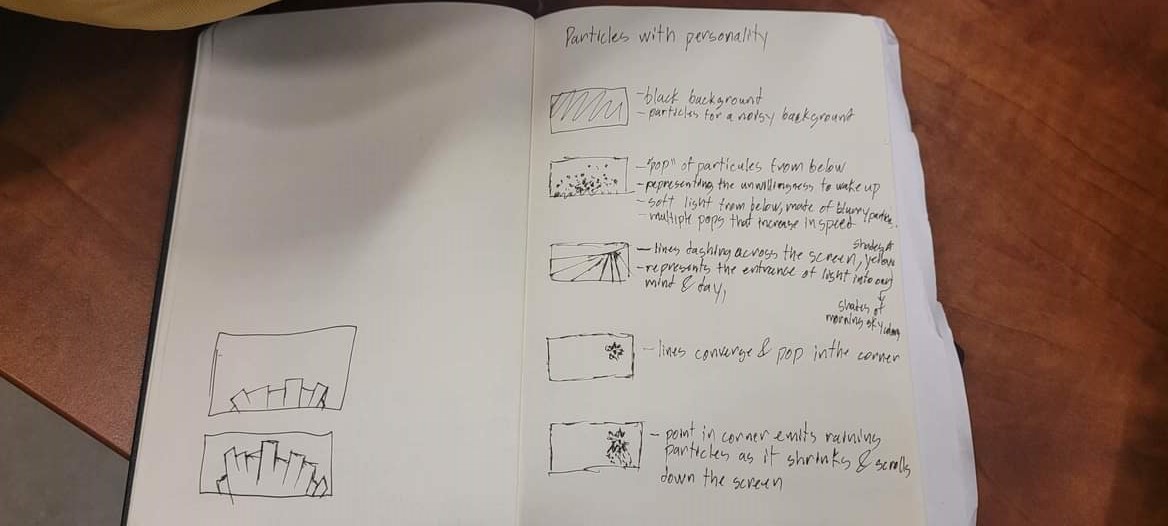 Particles with personality
-black background
- particles for a noisy background
- "pop" of particules from below
- representing the unwillingness to wake up
- soft light from below, made of blurry particles.
- multiple pops that increase in speed
- lines dashing across the screen, shades of yellow
- represents the entrance of light into our
mind & day,
shades of
morning sky
- lines converge & pop in the corner
- point in corner emits raining
particles as it shrinks & scrolls
down the screen